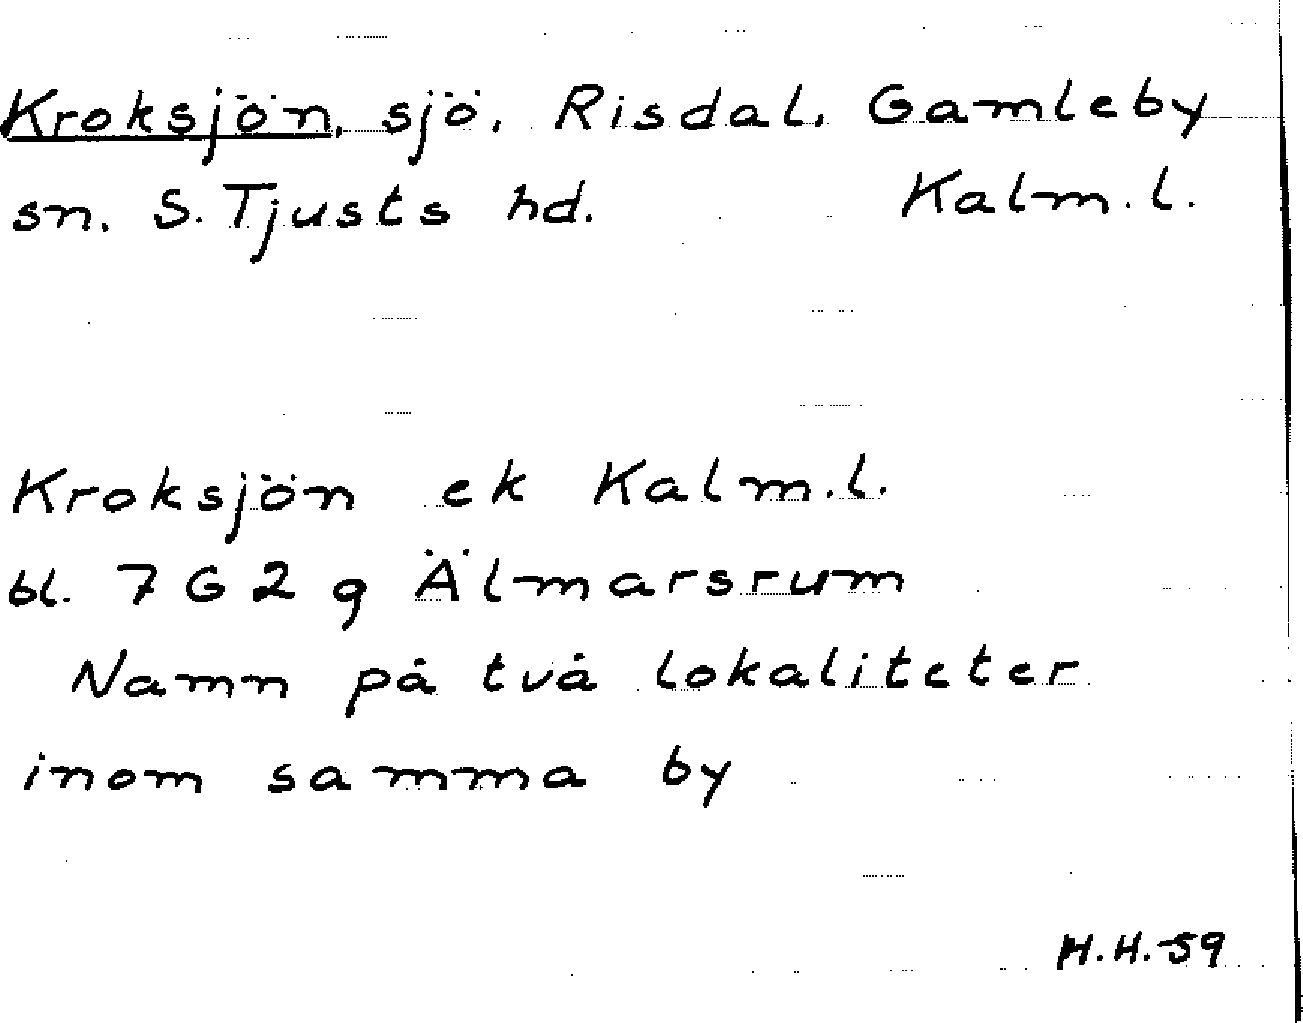 Kroksjön, sjö, Risdal, Gamleby
sn. S. Tjusts hd. Kalm. l.
Kroksjön ek Kalm. l.
bl. 7 G 2 g Älmarsrum
Namn på två lokaliteter
inom samma by
H.H.-59